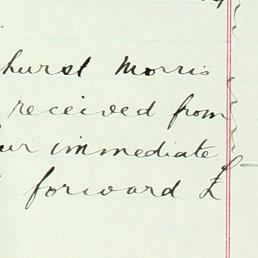 hurst Morris
received from
ur immediate
forward £